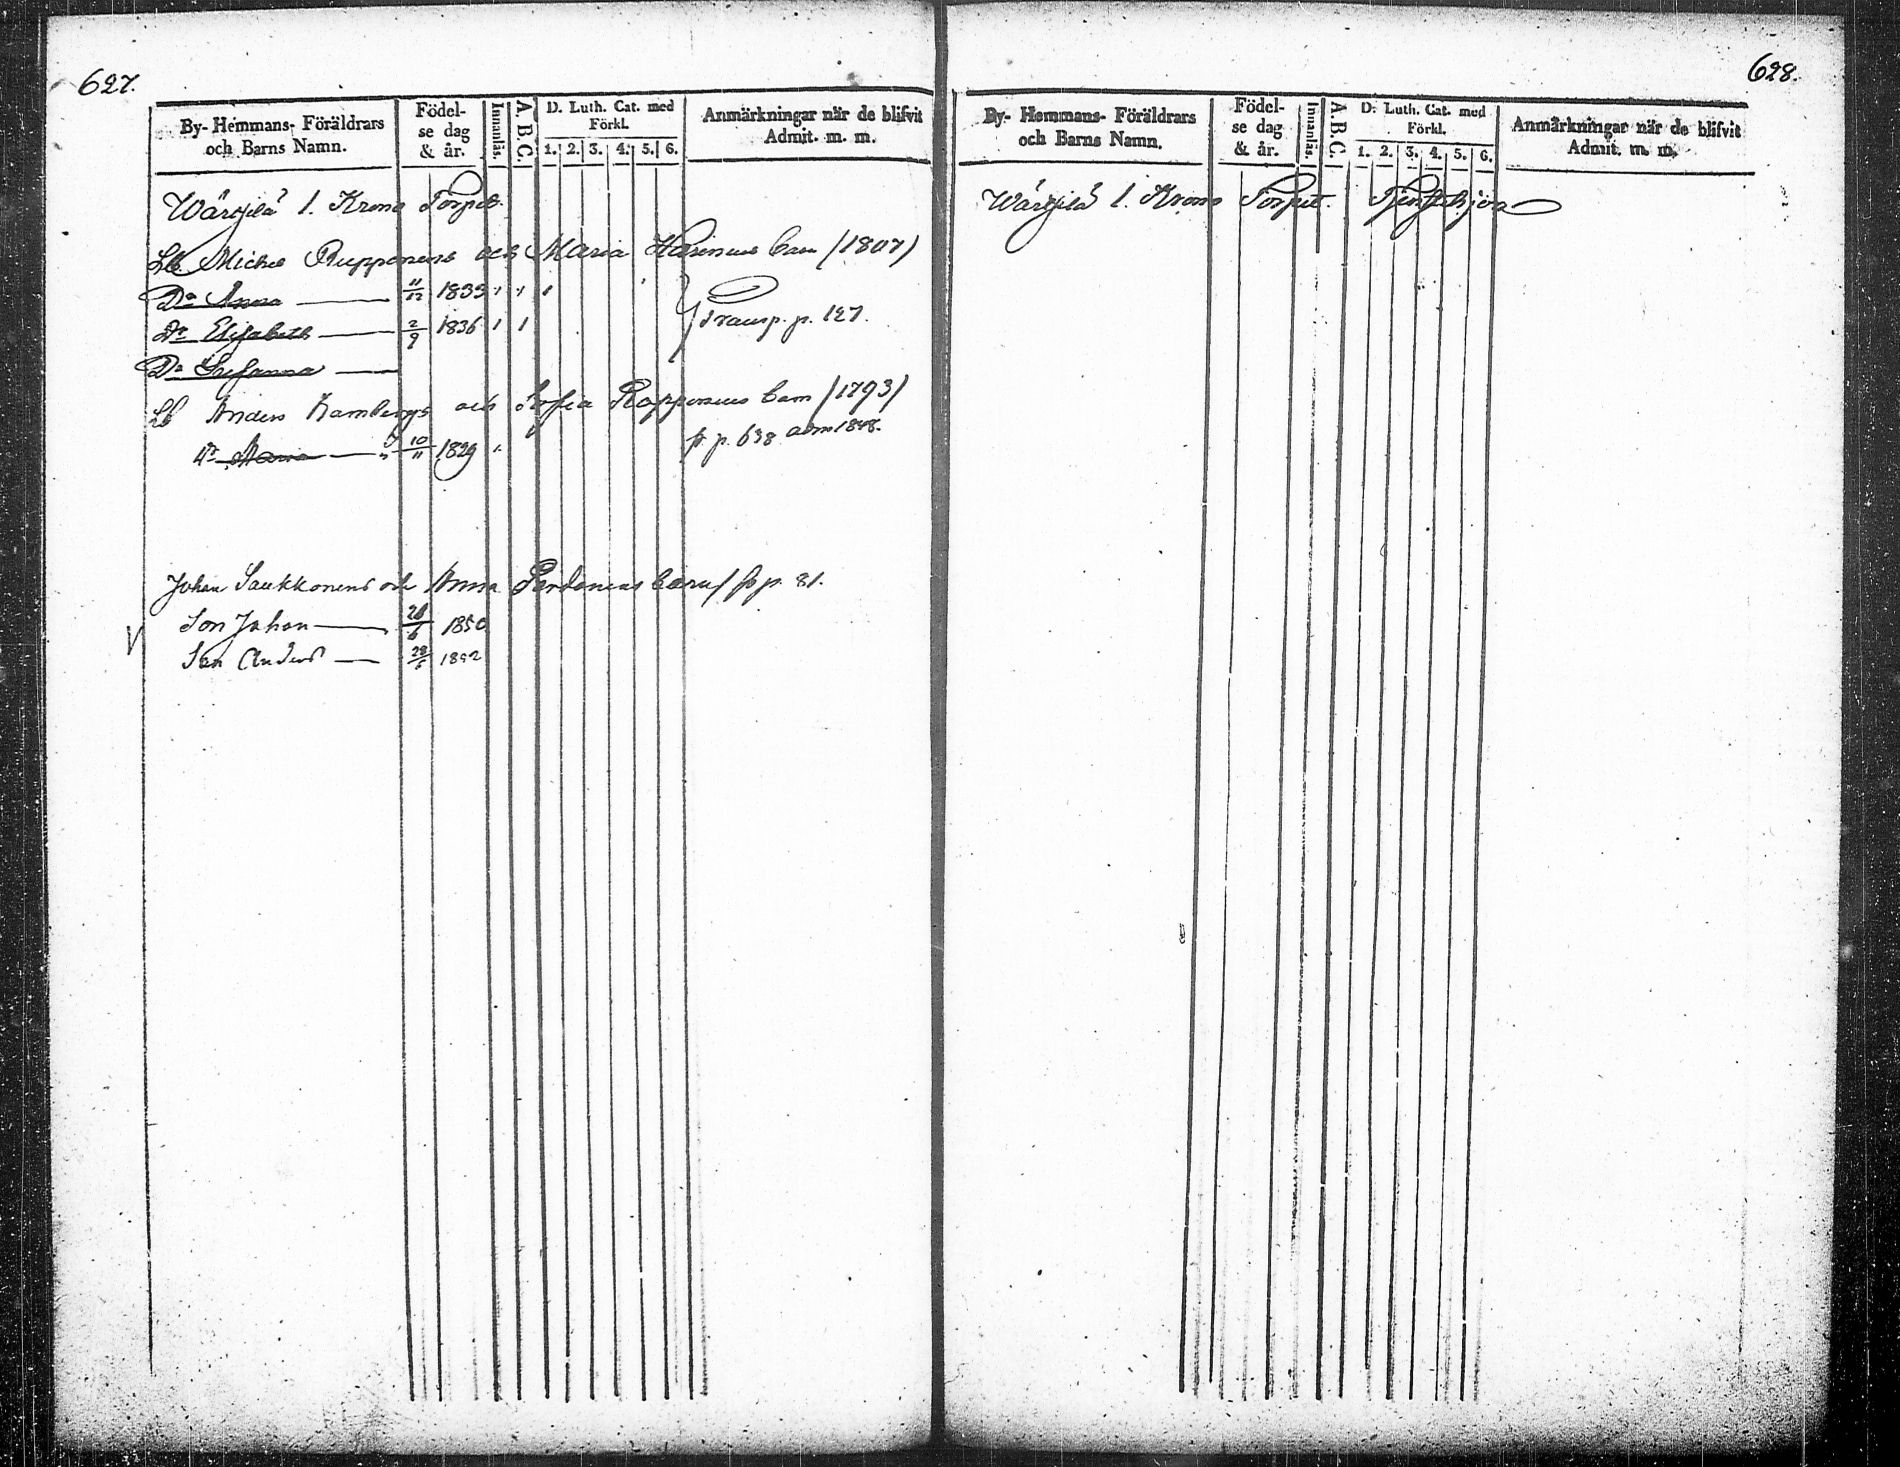 627.
By- Hemmans- Föräldrars och Barns Namn.
Födel- se dag & år.
Innanläs.
A. B. C.
D. Luth. Cat. med Förkl.
1. 2. 3. 4. 5. 6.
Anmärkningar när de blifvit Admit. m. m.
Wärtsilä 1. Krono Torpet.
Lb Michel Rupponens och Maria barn (1807)
Dr Anna 11/12 1833
Dr Elisabeth 2/9 1836
Transp. p. 127.
Dr Susanna
Lb Anders Kambergs och Sofia Ropponens barn (1793)
Dr Maria 10/11 1829 p. 638 adm 1848.
Johan Saukkonens och Anna barn p. 81.
Son Johan 26/6 1850
Son Anders 28/5 1852
628.
By- Hemmans- Föräldrars och Barns Namn.
Födel- se dag & år.
Innanläs.
A. B. C.
D. Luth. Cat. med Förkl.
1. 2. 3. 4. 5. 6.
Anmärkningar när de blifvit Admit. m. m.
Wärtsilä 1. Krono Torpet. Tjenstehjon